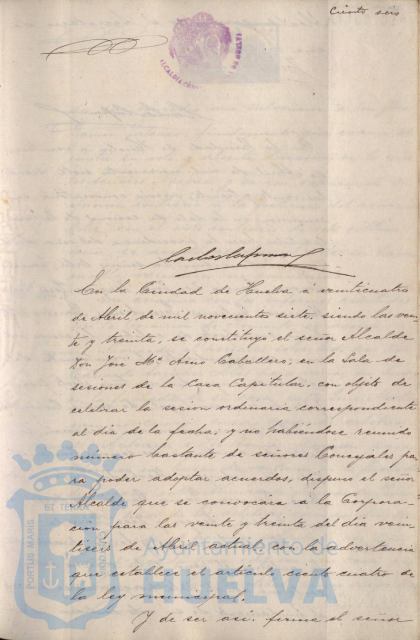 ciento seis
ALCALDÍA
En la Ciudad de Huelva á veinticuatro
de Abril, de mil novecientos siete, siendo las vein-
te y treinta, se constituyó el señor Alcalde
Don José Mª Amo Caballero, en la Sala de
sesiones de la Casa Capitular, con objeto de
celebrar la sesion ordinaria correspondiente
al dia de la fecha; y no habiéndose reunido
número bastante de señores Concejales pa-
ra poder adoptar acuerdos, dispuso el señor
Alcalde que se convocára á la Corpora-
cion para las veinte y treinta del dia vein-
tiseis de Abril actual con la advertencia
que establece el artículo ciento cuatro de
la ley municipal.
Y de ser asi, firma el señor
PORTUS MARIS
ET TERRAE
Ayuntamiento de
HUELVA